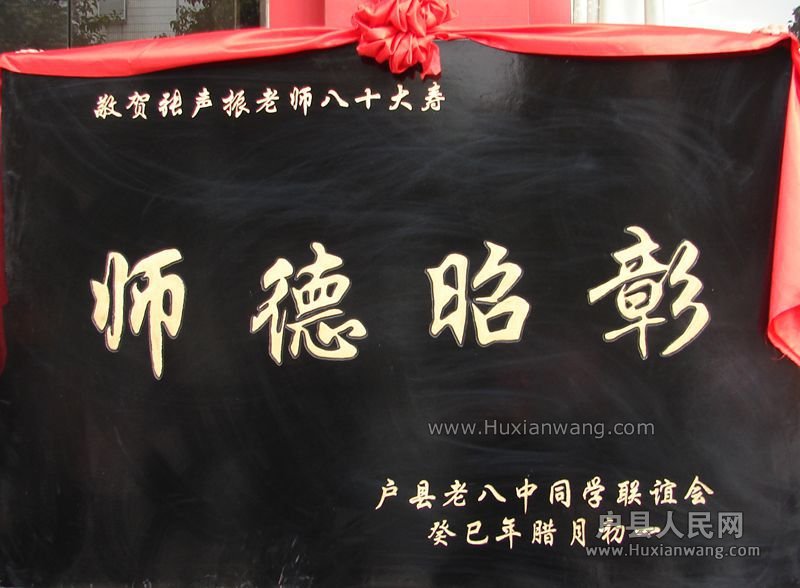 敬贺张声振老师八十大寿
师德昭彰
www.Huxianwang.com
户县老八中同学联谊会
癸巳年腊月初一
户县人民网
www.Huxianwang.com